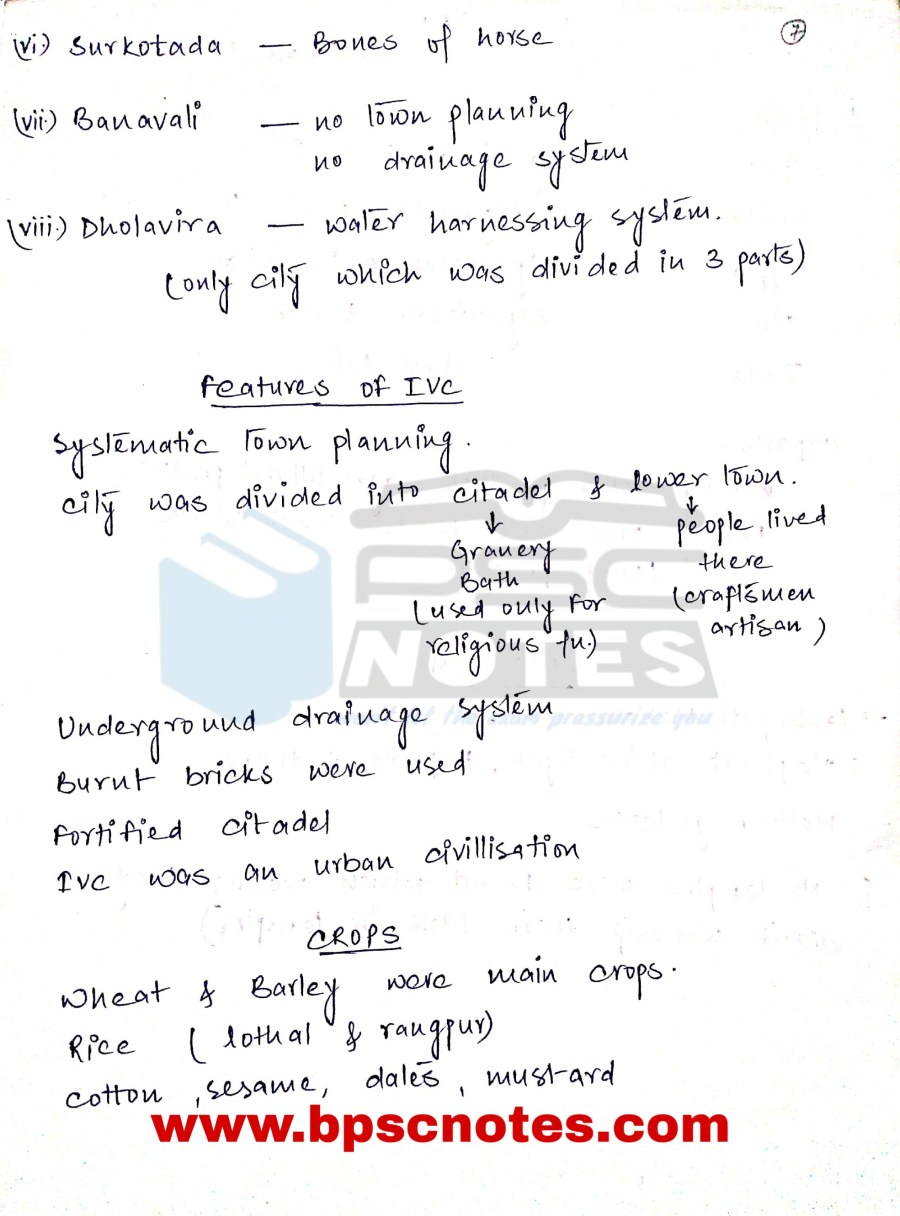 7
(vi) Surkotada — Bones of horse
(vii) Banavali — no Town planning
no drainage system
(viii) Dholavira — water harnessing system.
(only city which was divided in 3 parts)
Features of IVC
Systematic Town planning.
city was divided into citadel & lower Town.
↓ ↓
Granery
Bath
(used only for
religious fn)
people lived
there
(craftsmen
artisan)
Underground drainage system
Burnt bricks were used
Fortified citadel
IVC was an urban civillisation
CROPS
Wheat & Barley were main crops.
Rice (lothal & rangpur)
cotton, sesame, dates, mustard
PSC
NOTES
pressurize you
www.bpscnotes.com